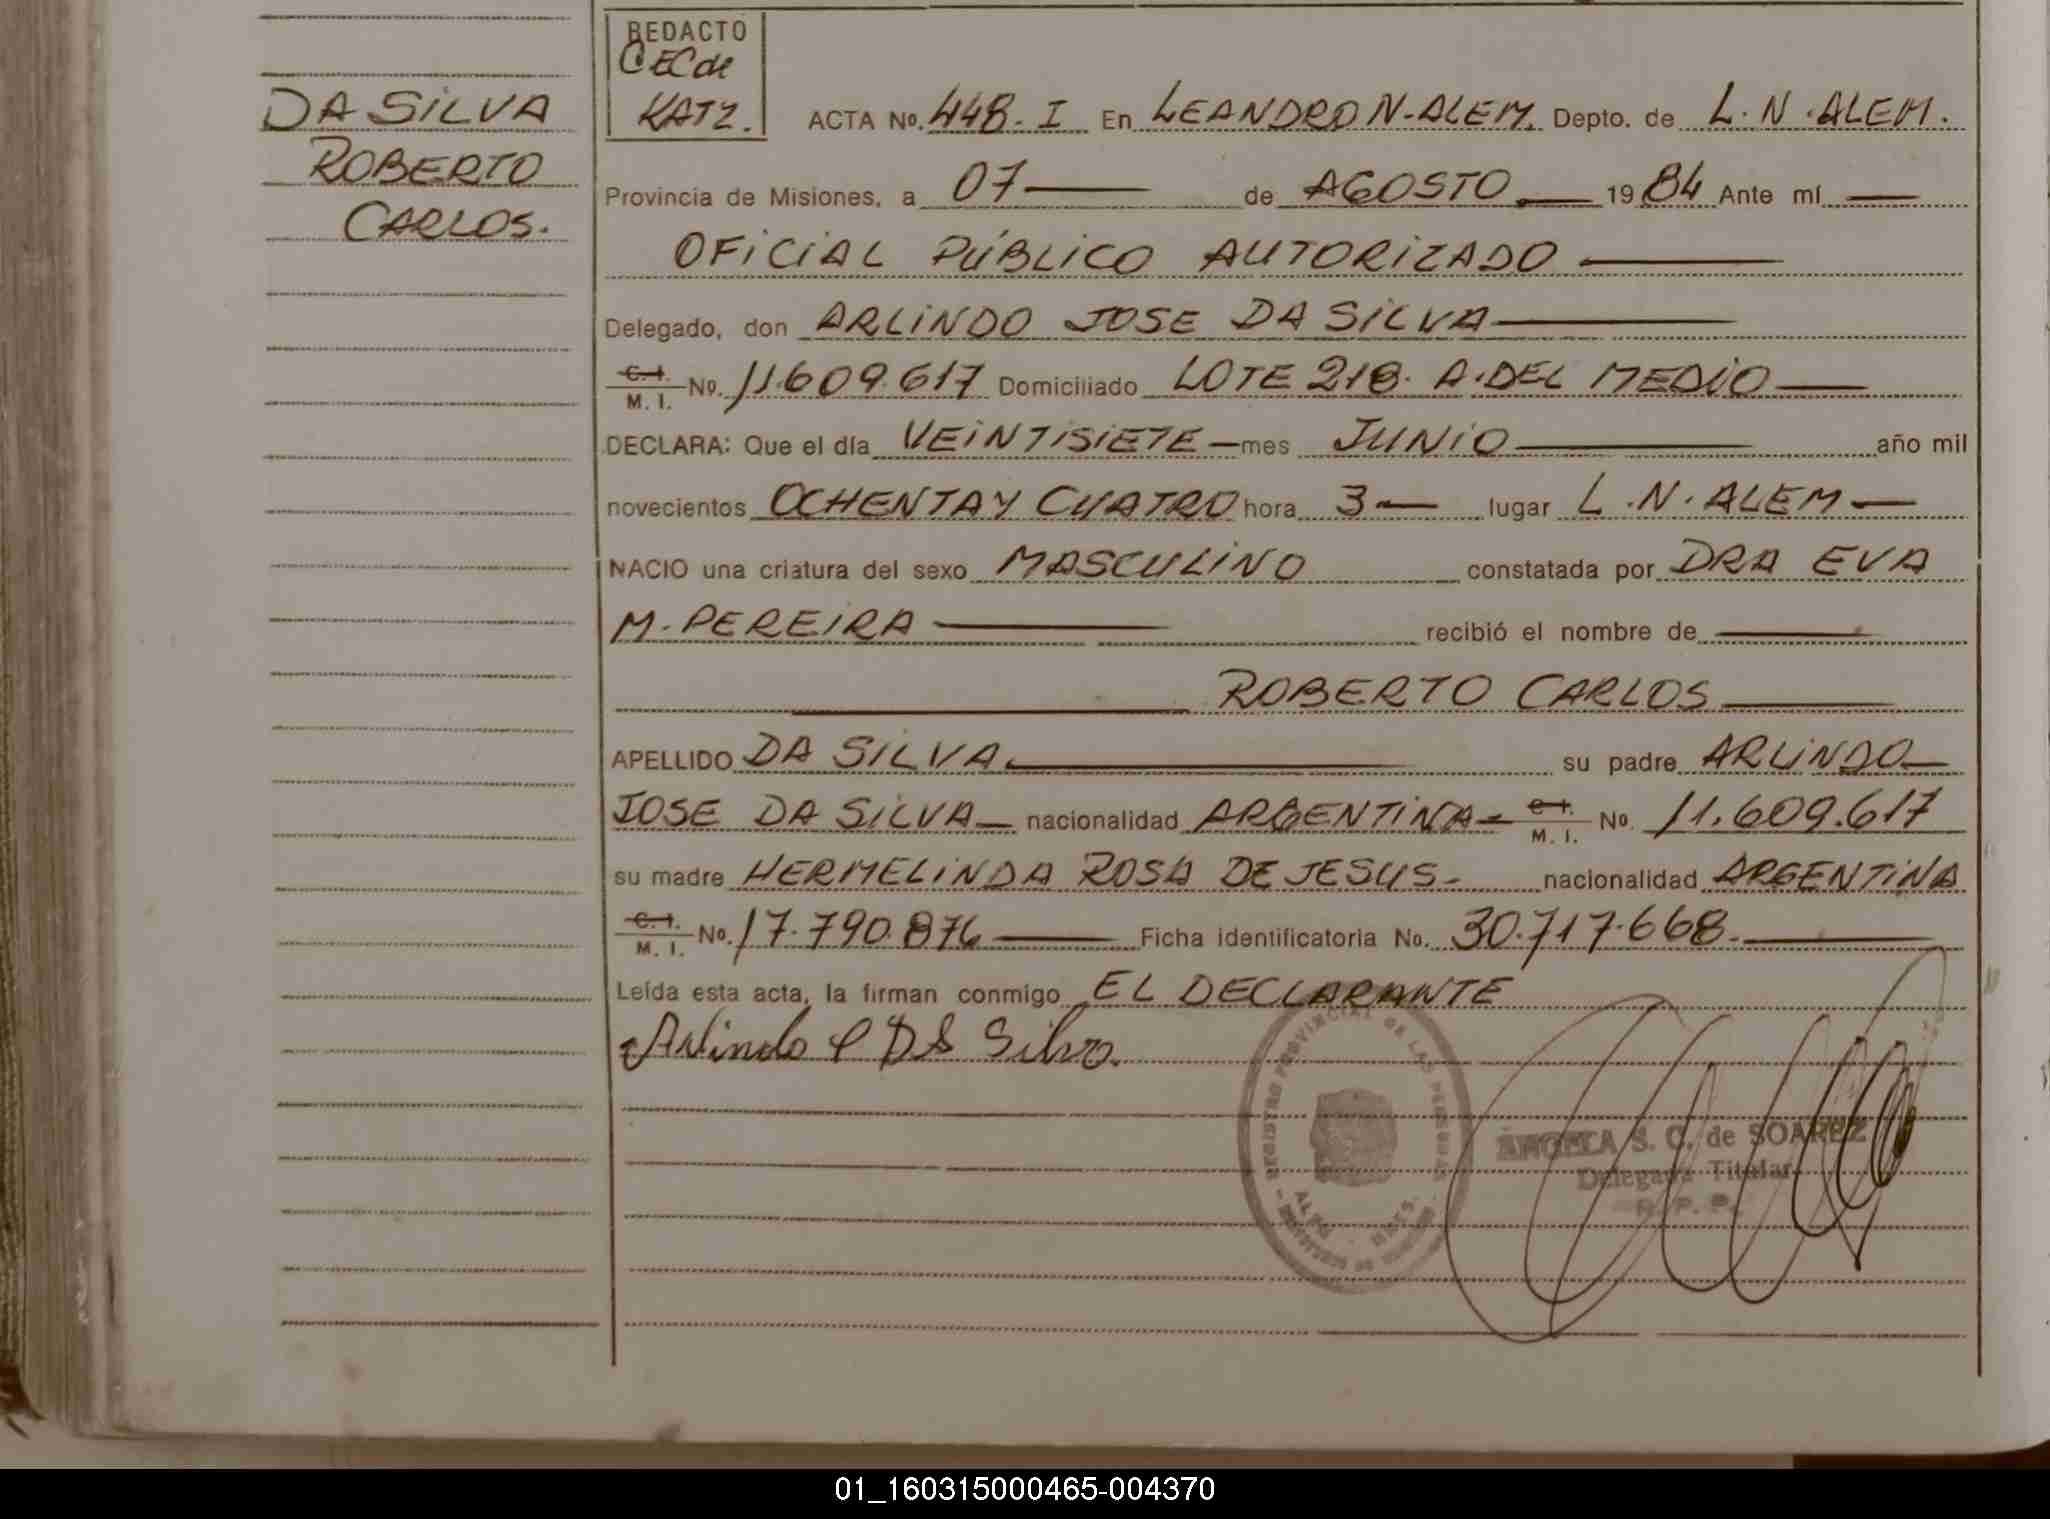 DA SILVA
ROBERTO
CARLOS.
REDACTO
C EC de
KATZ.
ACTA No. 448. I En LEANDRO N. ALEM. Depto. de L. N. ALEM.
Provincia de Misiones, a 07 de AGOSTO 1984 Ante mí
OFICIAL PÚBLICO AUTORIZADO
Delegado, don ARLINDO JOSE DA SILVA
C. I. M. I. No. 11.609.617 Domiciliado LOTE 218. A. DEL MEDIO
DECLARA: Que el día VEINTISIETE mes JUNIO año mil
novecientos OCHENTA Y CUATRO hora 3 lugar L. N. ALEM
NACIO una criatura del sexo MASCULINO constatada por DRA EVA
M. PEREIRA recibió el nombre de
ROBERTO CARLOS
APELLIDO DA SILVA su padre ARLINDO
JOSE DA SILVA nacionalidad ARGENTINA C. I. M. I. No. 11.609.617
su madre HERMELINDA ROSA DE JESUS nacionalidad ARGENTINA
C. I. M. I. No. 17.790.876 Ficha identificatoria No. 30.717.668.
Leída esta acta, la firman conmigo EL DECLARANTE
Arlindo J Da Silva
REGISTRO PROVINCIAL DE LAS PERSONAS
ANGELA S. C. de SOAREZ
Delegada Titular
R. P. P.
01_160315000465-004370